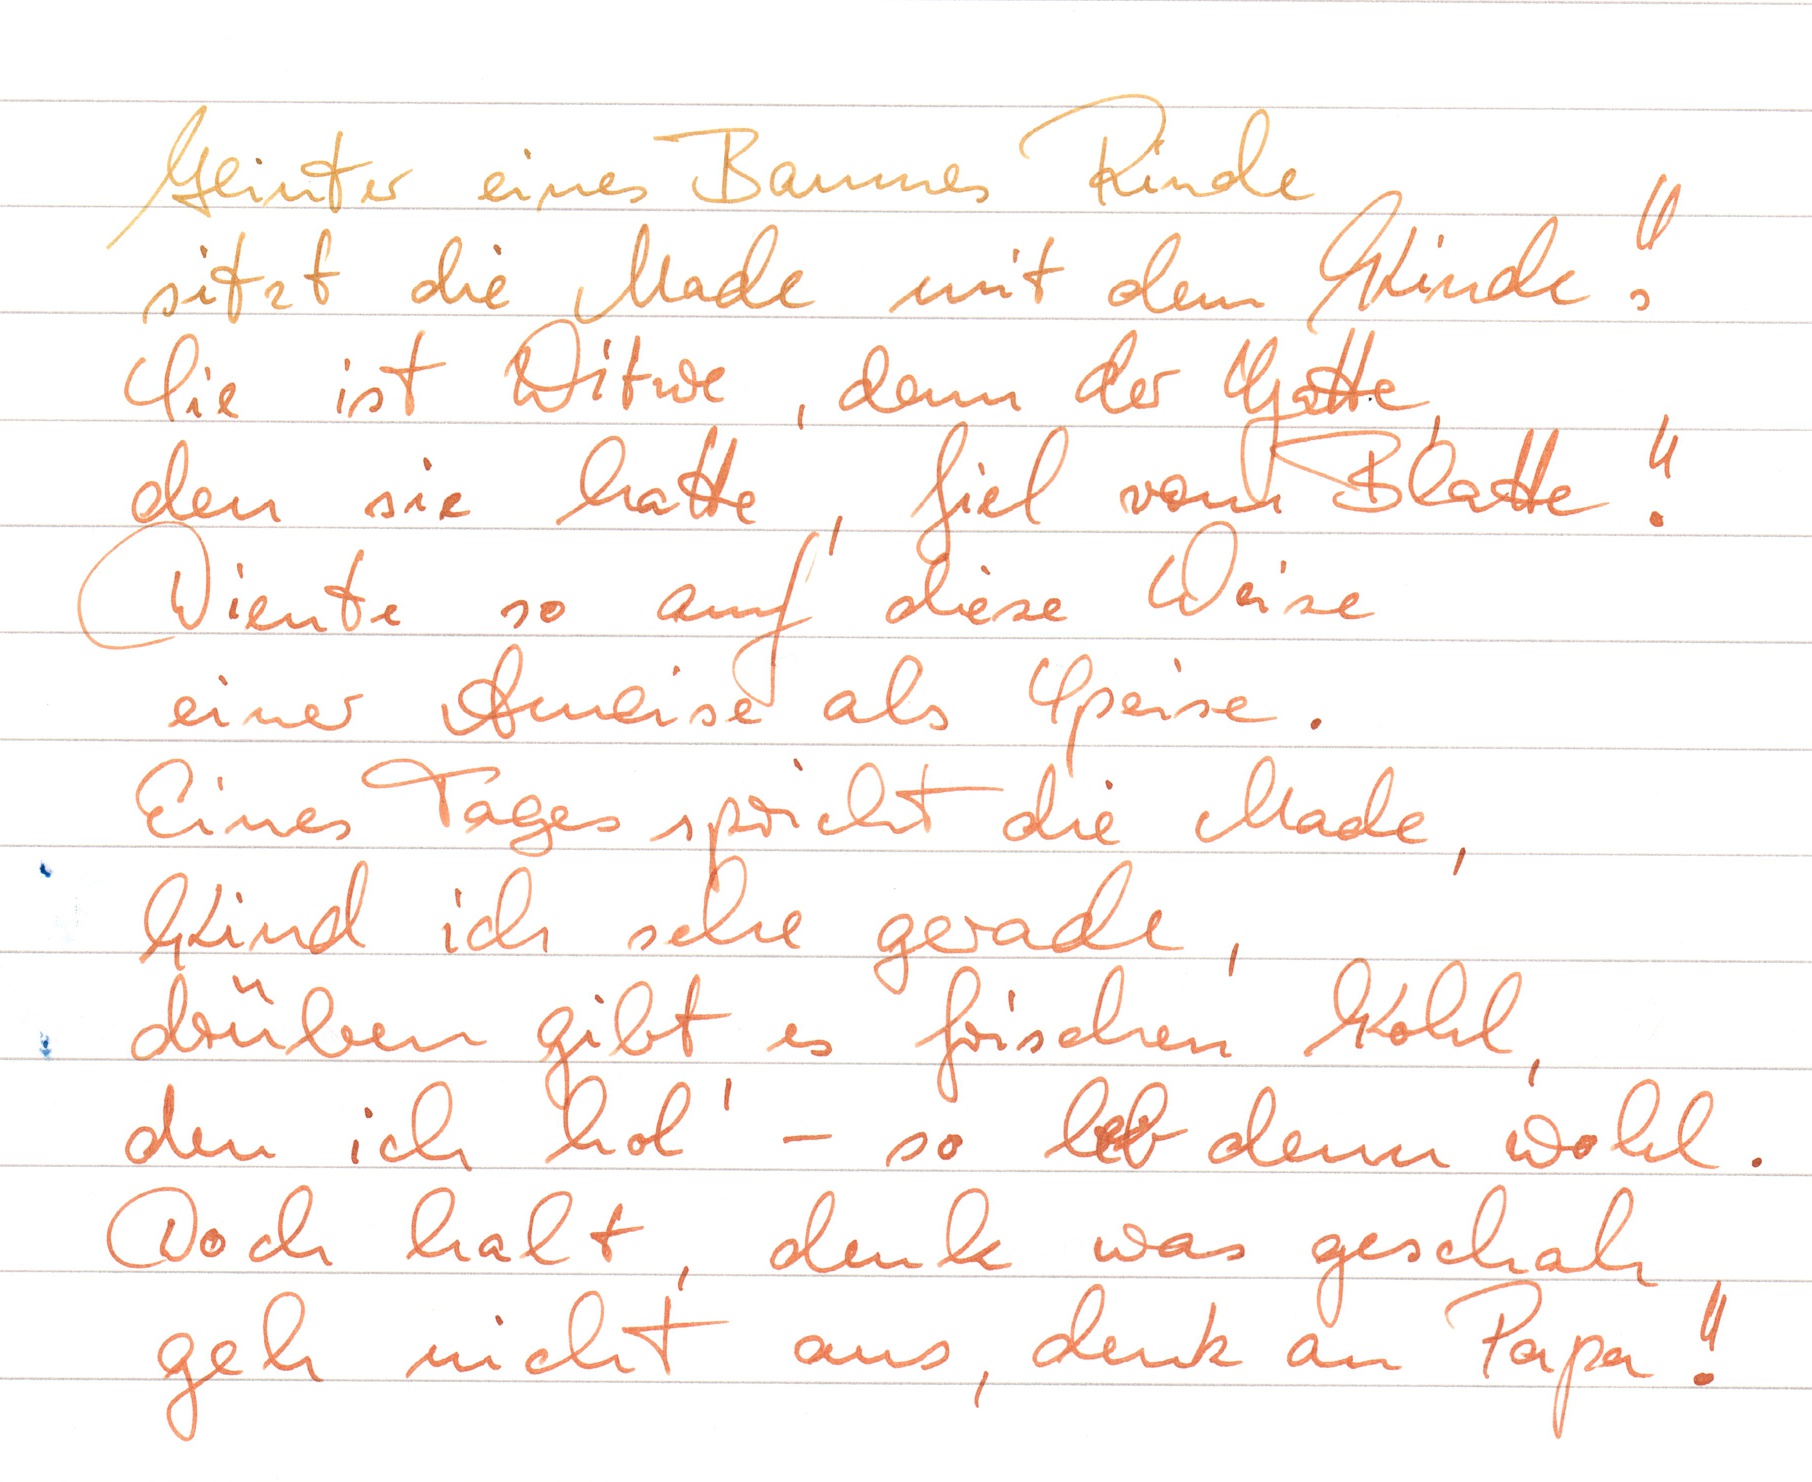 Hinter eines Baumes Rinde
sitzt die Made mit dem Kinde!
Sie ist Witwe, denn der Gatte,
den sie hatte, fiel vom Blatte!
Diente so auf diese Weise
einer Ameise als Speise.
Eines Tages spricht die Made,
Kind ich sehe gerade,
drüben gibt es frischen Kohl,
den ich hol' – so leb denn wohl.
Doch halt, denk was geschah,
geh nicht aus, denk an Papa!